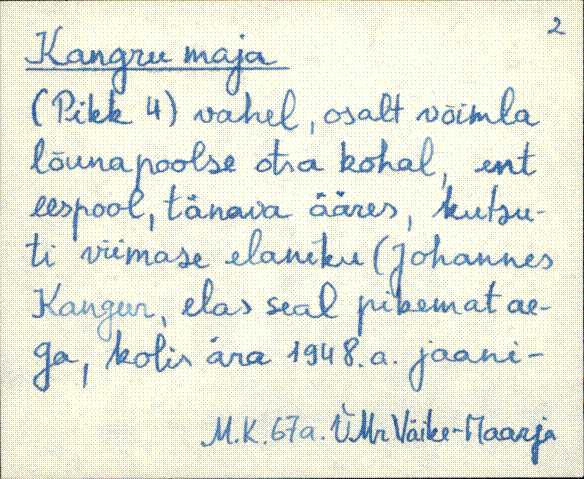 2
Kangru maja
(Pikk 4) vahel, osalt võimla
lõunapoolse otsa kohal, ent
eespool, tänava ääres, kutsu-
ti viimase elaniku (Johannes
Kangur, elas seal pikemat ae-
ga, kolis ära 1948.a. jaani-
M.K. 67a. ÜMr Väike-Maarja